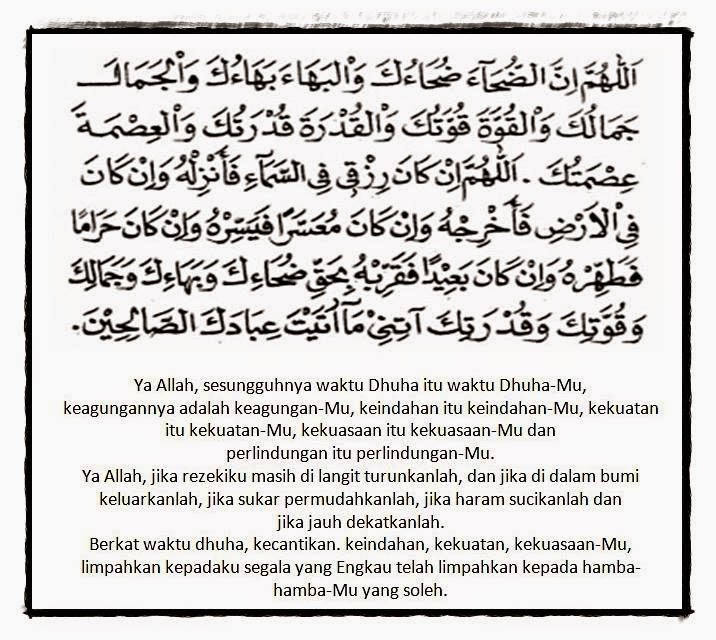 اَللّٰهُمَّ اِنَّ الضُّحَآءَ ضُحَاءُكَ وَالْبَهَاءَ بَهَاءُكَ وَالْجَمَالَ
جَمَالُكَ وَالْقُوَّةَ قُوَّتُكَ وَالْقُدْرَةَ قُدْرَتُكَ وَالْعِصْمَةَ
عِصْمَتُكَ . اَللّٰهُمَّ اِنْ كَانَ رِزْقِى فِى السَّمَآءِ فَأَنْزِلْهُ وَاِنْ كَانَ
فِى الْاَرْضِ فَأَخْرِجْهُ وَاِنْ كَانَ مُعَسَّرًا فَيَسِّرْهُ وَاِنْ كَانَ حَرَامًا
فَطَهِّرْهُ وَاِنْ كَانَ بَعِيْدًا فَقَرِّبْهُ بِحَقِّ ضُحَاءِكَ وَبَهَاءِكَ وَجَمَالِكَ
وَقُوَّتِكَ وَقُدْرَتِكَ آتِنِىْ مَآاٰتَيْتَ عِبَادَكَ الصَّالِحِيْنَ.
Ya Allah, sesungguhnya waktu Dhuha itu waktu Dhuha-Mu,
keagungannya adalah keagungan-Mu, keindahan itu keindahan-Mu, kekuatan
itu kekuatan-Mu, kekuasaan itu kekuasaan-Mu dan
perlindungan itu perlindungan-Mu.
Ya Allah, jika rezekiku masih di langit turunkanlah, dan jika di dalam bumi
keluarkanlah, jika sukar permudahkanlah, jika haram sucikanlah dan
jika jauh dekatkanlah.
Berkat waktu dhuha, kecantikan. keindahan, kekuatan, kekuasaan-Mu,
limpahkan kepadaku segala yang Engkau telah limpahkan kepada hamba-
hamba-Mu yang soleh.